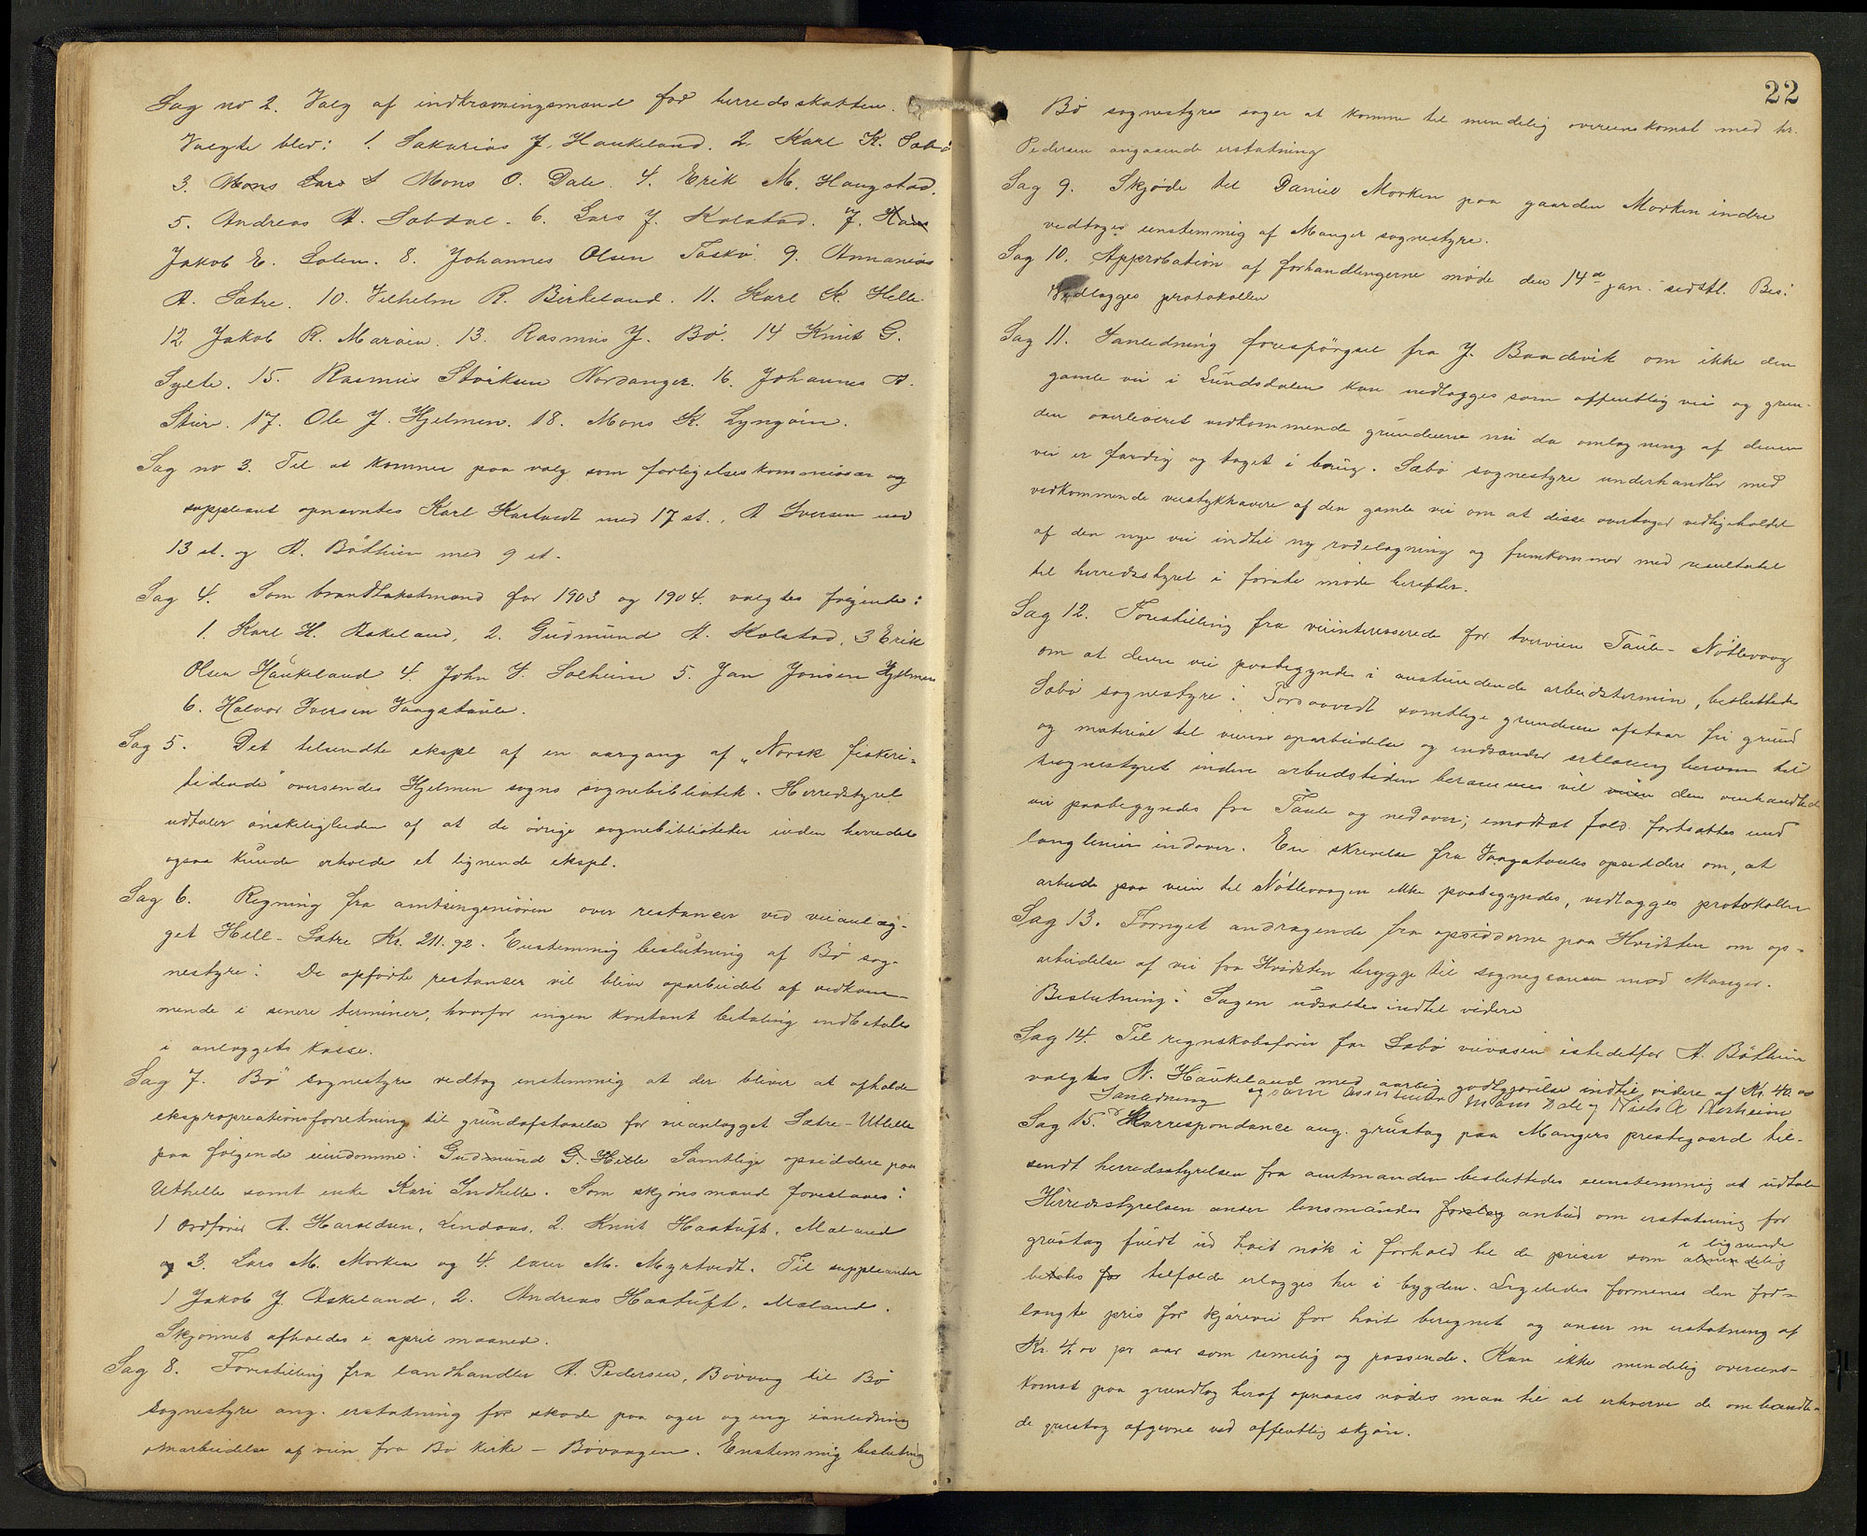 Sag no 2. Valg af indkrævningsmænd for herredsskatten.
Valgte blev: 1. Sakarias J. Haukeland. 2. Karl K. Sæbø
3. Mons Lars S Mons O. Dale. 4. Erik M. Haugstad.
5. Andreas A. Sæbdal. 6. Lars J. Kolstad. 7. Hans
Jakob E. Solem. 8. Johannes Olsen Toska. 9. Annanias
A. Sætre. 10. Vilhelm R. Birkeland. 11. Karl K. Helle
12 Jakob R. Marøen. 13. Rasmus J. Bø. 14 Knut G.
Sylte. 15. Rasmus Størksen Nordanger. 16. Johannes A.
Stuer. 17. Ole J. Hjelmen. 18. Mons K. Lyngøen.
Sag no 3. Til at komme paa valg som forligelseskommissær og
suppleant opnævntes Karl Kartvedt med 17 st., A Iversen med
13 st. og A. Bøthun med 9 st.
Sag 4. Som brandtakstmænd for 1903 og 1904. valgtes følgende:
1. Karl H. Askeland, 2. Gudmund A. Kolstad, 3 Erik
Olsen Haukeland 4. John S. Solheim 5. Jan Jonsen Hjelmen
6. Halvor Iversen Vaagstaule.
Sag 5. Det tilsendte ekspl af en aargang af „Norsk fiskeri-
tidende" oversendes Hjelmen sogns sognebibliotek. Herredstyret
udtaler ønskeligheden af at de øvrige sognebiblioteker inden herredet
ogsaa kunde erholde et lignende ekspl.
Sag 6. Regning fra amtsingeniøren over restancer ved veianlæg-
get Hell-Sætre Kr. 211.92. Enstemmig beslutning af Bø sog-
nestyre: De opførte restanser vil blive oparbeidet af vedkom-
mende i senere terminer, hvorfor ingen kontant betaling indbetales
i anlæggets kasse.
Sag 7. Bø sognestyre vedtog enstemmig at der bliver at afholde
ekspropriationsforretning til grundafstaaelse for veianlægget Sætre-Uthelle
paa følgende eiendomme: Gudmund G. Hille Samtlige opsiddere paa
Uthelle samt enke Kari Indhelle. Som skjønsmænd foreslaaes:
1 ordfører A. Haraldsen, Lindaas, 2. Knut Hastuft, Maland
og 3. Lars M. Morken og 4. M. Myrtvedt. Til suppleanter
1 Jakob J. Askeland, 2. Andreas Hastuft, Maland.
Skjønnet afholdes i april maaned.
Sag 8. Forestilling fra landhandler A. Pedersen, Bøvaag til Bø
sognestyre ang. erstatning for skade paa ager og eng ianledning
omarbeidelse af veien fra Bø kirke - Bøvaagen. Enstemmig beslutning
22
Bø sognestyre søger at komme til mindelig overenskomst med hr.
Pedersen angaaende erstatning
Sag 9. Skjøde til Daniel Morken paa gaarden Morken indre
vedtages eenstemmig af Manger sognestyre.
Sag 10. Approbation af forhandlingerne møde den 14de jan. sidstl. Bes:
Vedlægges protokollen
Sag 11. I anledning forespørgsel fra J. Baadsvik om ikke den
gamle vei i Lundsdalen kan nedlægges som offentlig vei og grun-
den overleveret vedkommende grundeiere nu da omlægning af denne
vei er færdig og taget i brug. Sæbø sognestyre underhandler med
vedkommende veistykkhavere af den gamle vei om at disse overtager vedligeholdet
af den nye vei indtil ny rodelægning og fremkommer med resultatet
til herredsstyret i første møde herefter.
Sag 12. Forestilling fra veiinteresserede for tverveien Taule-Nøtlevaag
om at denne vei paabegyndes i anstundende arbeidstermin, besluttede
Sæbø sognestyre: Forsaavidt samtlige grundeiere afstaar fri grund
og material til veiens oparbeidelse og indsender erklæring herom til
sognestyret inden arbeidstiden berammes vil veien den omhandlede
vei paabegyndes fra Taule og nedover; imodsat fald fortsættes med
langlinien indover. En skrivelse fra Vaagstaules opsiddere om, at
arbeide paa veien til Nøtlevaagen ikke paabegyndes, vedlægges protokollen
Sag 13. Fornyet andragende fra opsidderne paa Hvidsten om op-
arbeidelse af vei fra Hvidsten brygge til sognegrænsen mod Manger.
Beslutning: Sagen udsættes indtil videre
Sag 14. Til regnskabsfører for Sæbø veivæsen istedetfor A. Bøthun
valgtes N. Haukeland med aarlig godtgjørelse indtil videre af Kr. 40.00
og som assistenter Mons Dale og Niels A
Ianledning
Sag 15. Korrespondance ang. grustag paa Mangers prestegaard til-
sendt herredsstyrelsen fra amtmanden besluttedes eenstemmig at udtale
Herredsstyrelsen anser lensmandens forslag anbud om erstatning for
grustag fuldt ud høit nok i forhold til de priser som almindelig
i lignende
betales for tilfælde erlægges her i bygden. Ligeledes formenes den for-
langte pris for kjørevei for høit beregnet og anser en erstatning af
Kr. 4.00 pr aar som rimelig og passende. Kan ikke mindelig overens-
komst paa grundlag heraf opnaaes nødes man til at erhverve de omhandle-
de grustag afgivne ved offentlig skjøn.